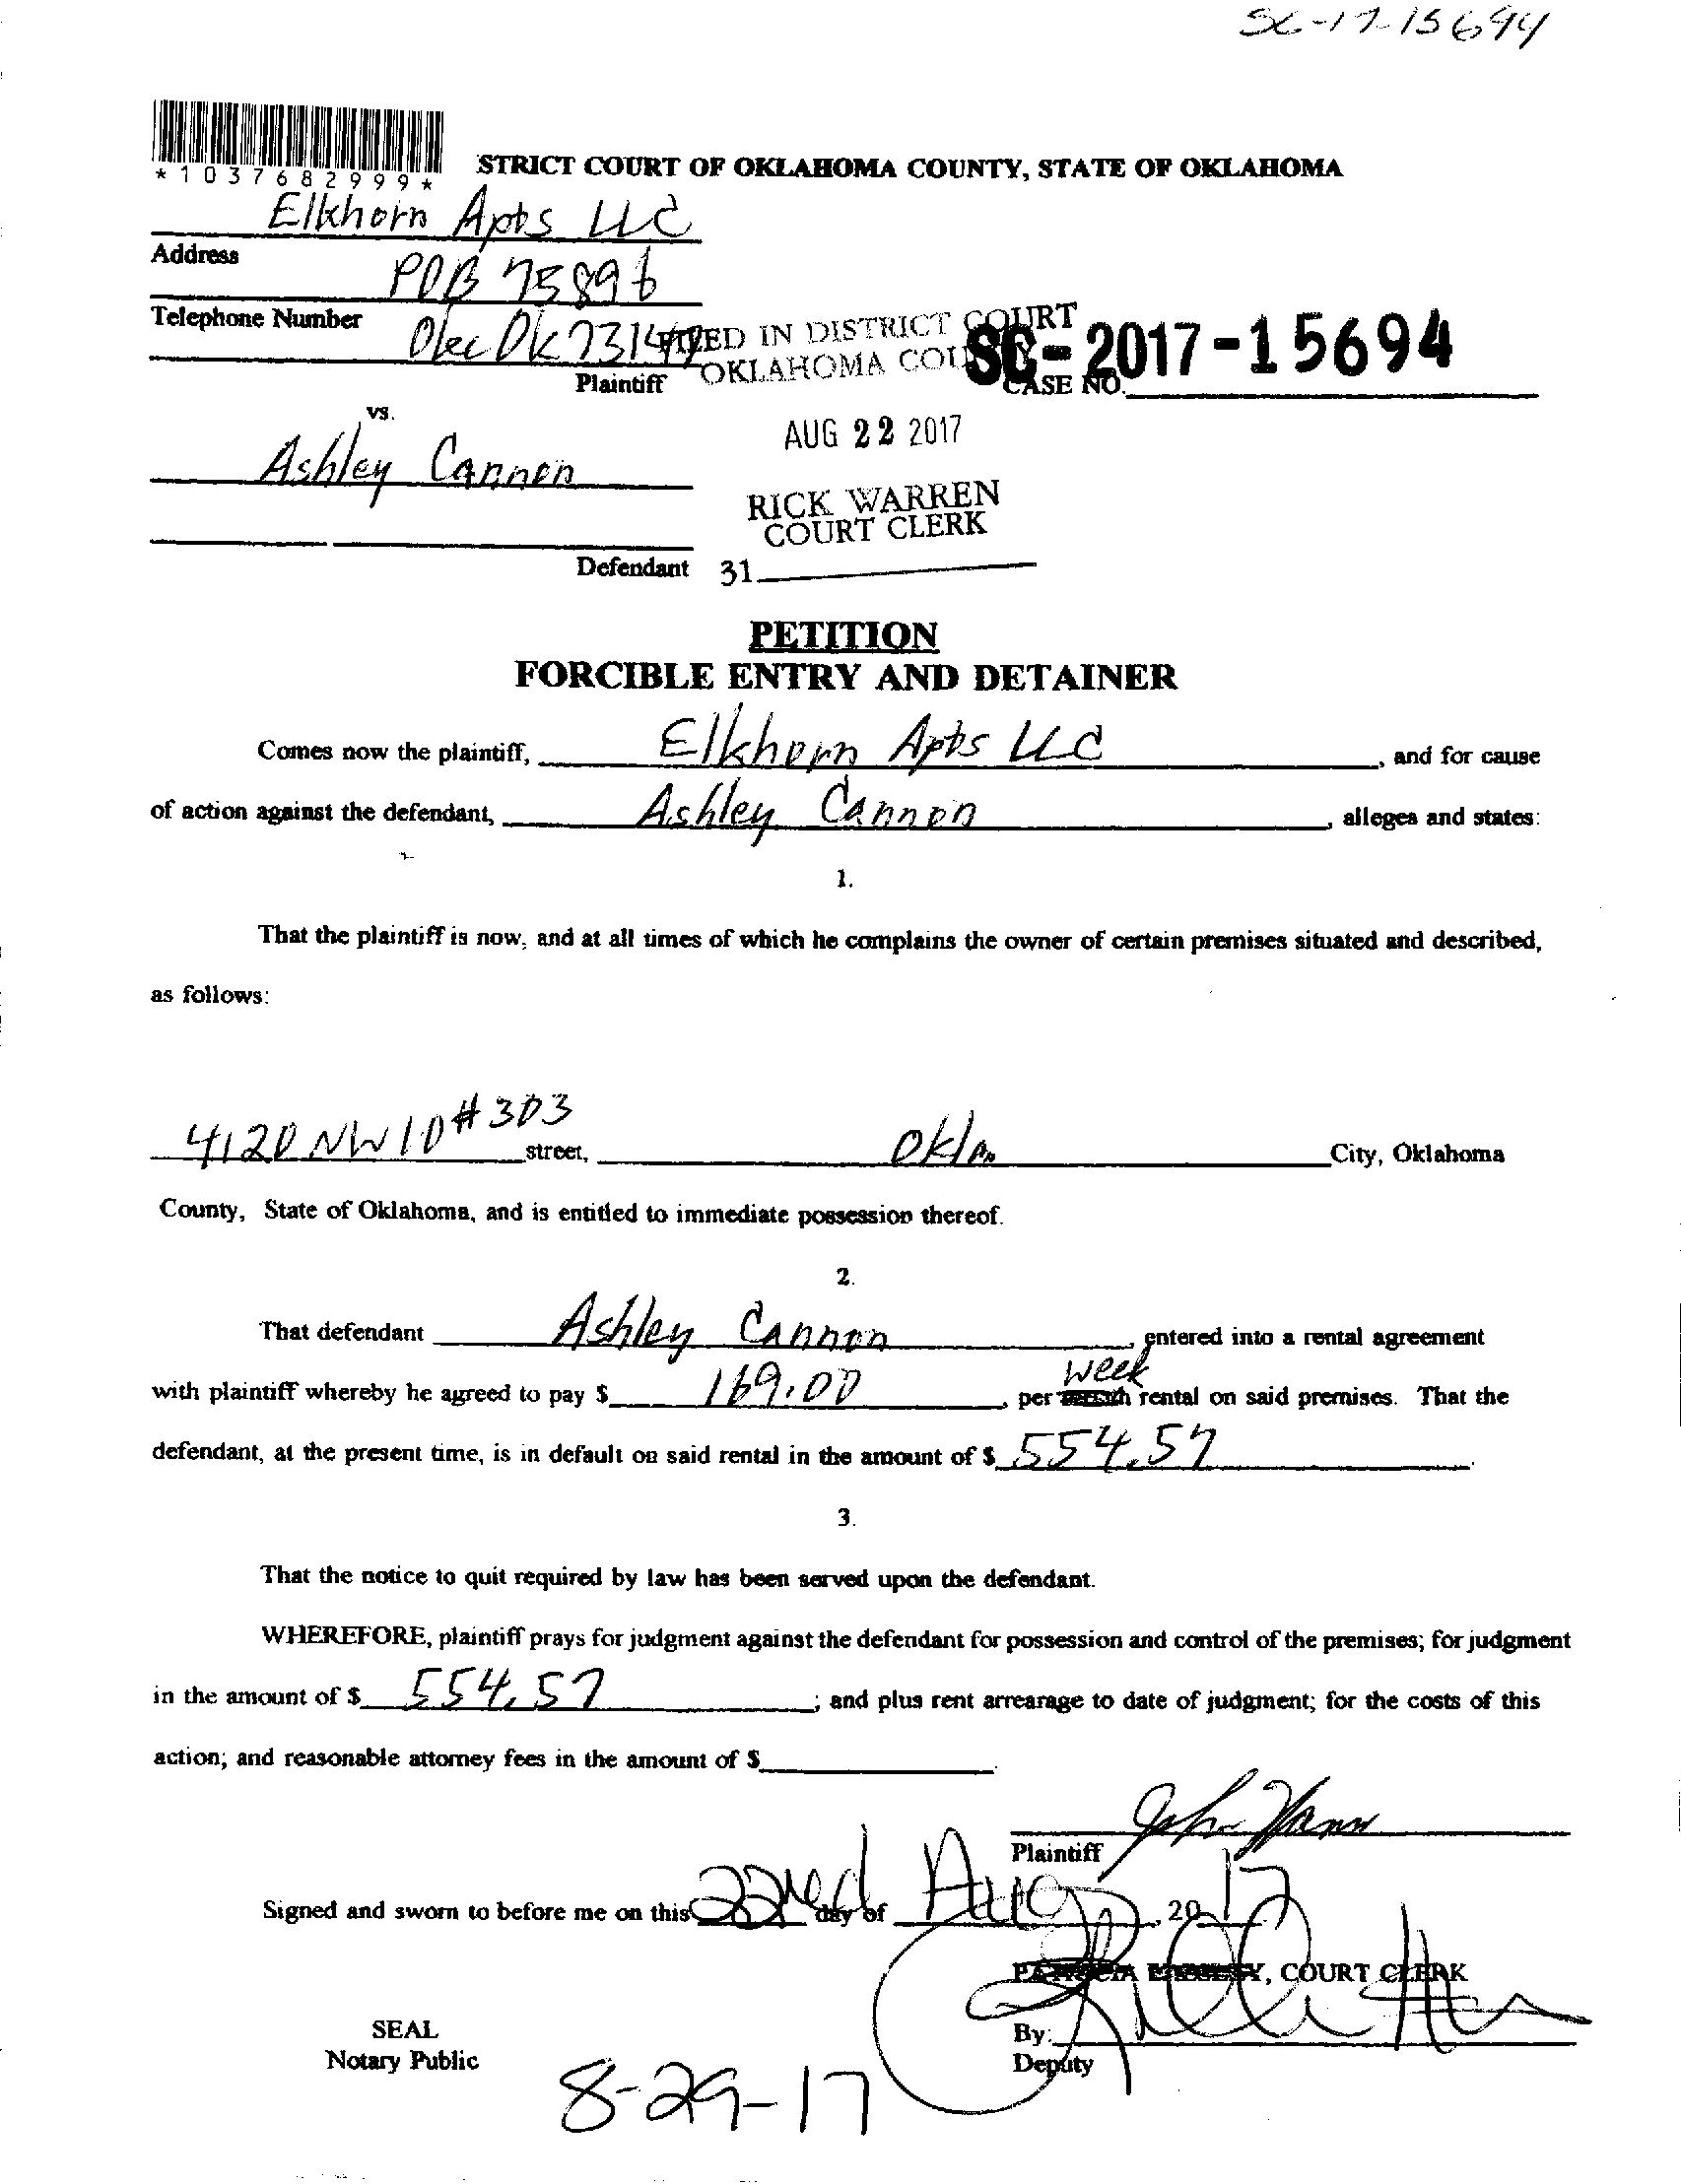 SC-17-15694
*1037682999*
STRICT COURT OF OKLAHOMA COUNTY, STATE OF OKLAHOMA
Elkhorn Apts LLC
Address
POB 75896
Telephone Number
Okc Ok 73147
FILED IN DISTRICT COURT
OKLAHOMA COUNTY
SC-2017-15694
Plaintiff
CASE NO.
vs.
AUG 22 2017
Ashley Cannon
RICK WARREN
COURT CLERK
Defendant
31
PETITION
FORCIBLE ENTRY AND DETAINER
Comes now the plaintiff, Elkhorn Apts LLC, and for cause
of action against the defendant, Ashley Cannon, alleges and states:
1.
That the plaintiff is now, and at all times of which he complains the owner of certain premises situated and described,
as follows:
4120 NW 10 #303 street, Okla City, Oklahoma
County, State of Oklahoma, and is entitled to immediate possession thereof.
2.
That defendant Ashley Cannon, entered into a rental agreement
with plaintiff whereby he agreed to pay $ 169.00, per week rental on said premises. That the
defendant, at the present time, is in default on said rental in the amount of $ 554.57.
3.
That the notice to quit required by law has been served upon the defendant.
WHEREFORE, plaintiff prays for judgment against the defendant for possession and control of the premises; for judgment
in the amount of $ 554.57; and plus rent arrearage to date of judgment; for the costs of this
action; and reasonable attorney fees in the amount of $
Plaintiff
Signed and sworn to before me on this 22nd day of Aug, 2017
, COURT CLERK
SEAL
By:
Notary Public
Deputy
8-29-17